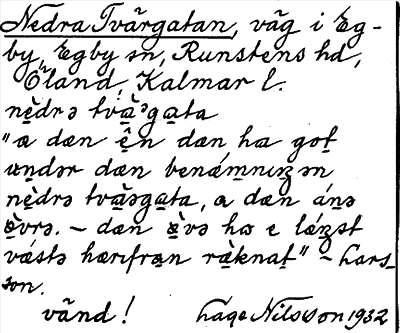 Nedra Tvärgatan, väg i Eg-
by, Egby sn, Runstens hd,
Öland, Kalmar l.
nèdrə tvæ̀ᵊgata
"a dæn ên dan ha got
undər dæn benámnıŋən
nèdrə tvæ̀əgata, a dæn ánə
ø̀vrə. – dæn æ̀və ha e lǽŋst
vástə hærıfran ræ̀knat" – Lars-
son.
vänd! Håge Nilsson 1932